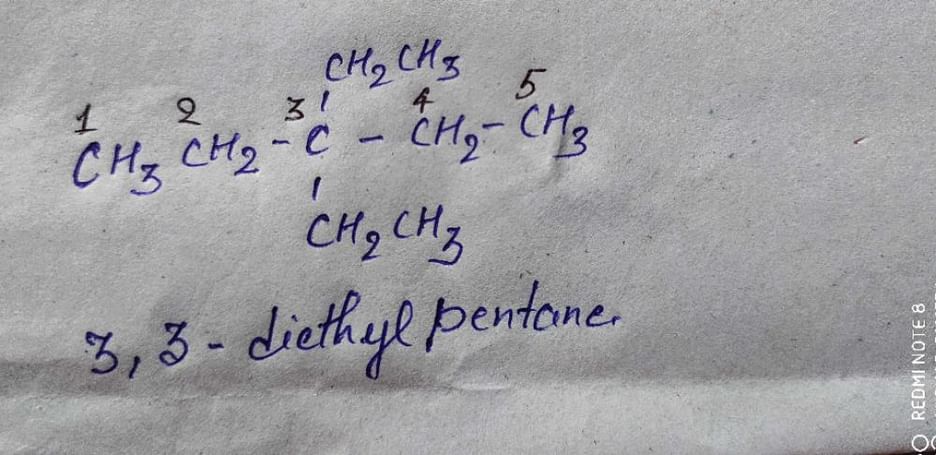 CH₂CH₃
1 2 3 4 5
CH₃ CH₂-C-CH₂-CH₃
CH₂CH₃
3,3-diethyl pentane.
REDMI NOTE 8